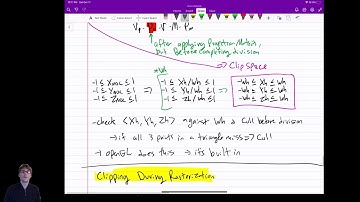 after applying Projection Matrix,
but Before completing division
Clip Space
-1 ≤ XNDC ≤ 1
-1 ≤ YNDC ≤ 1
-1 ≤ ZNDC ≤ 1
⇒
-1 ≤ Xh/Wh ≤ 1
-1 ≤ Yh/Wh ≤ 1
-1 ≤ Zh/Wh ≤ 1
⇒
-Wh ≤ Xh ≤ Wh
-Wh ≤ Yh ≤ Wh
-Wh ≤ Zh ≤ Wh
-check <Xh, Yh, Zh> against Wh & Cull before division
→ if all 3 points in a triangle miss => Cull
→ OpenGL does this → it's built in
Clipping During Rasterization